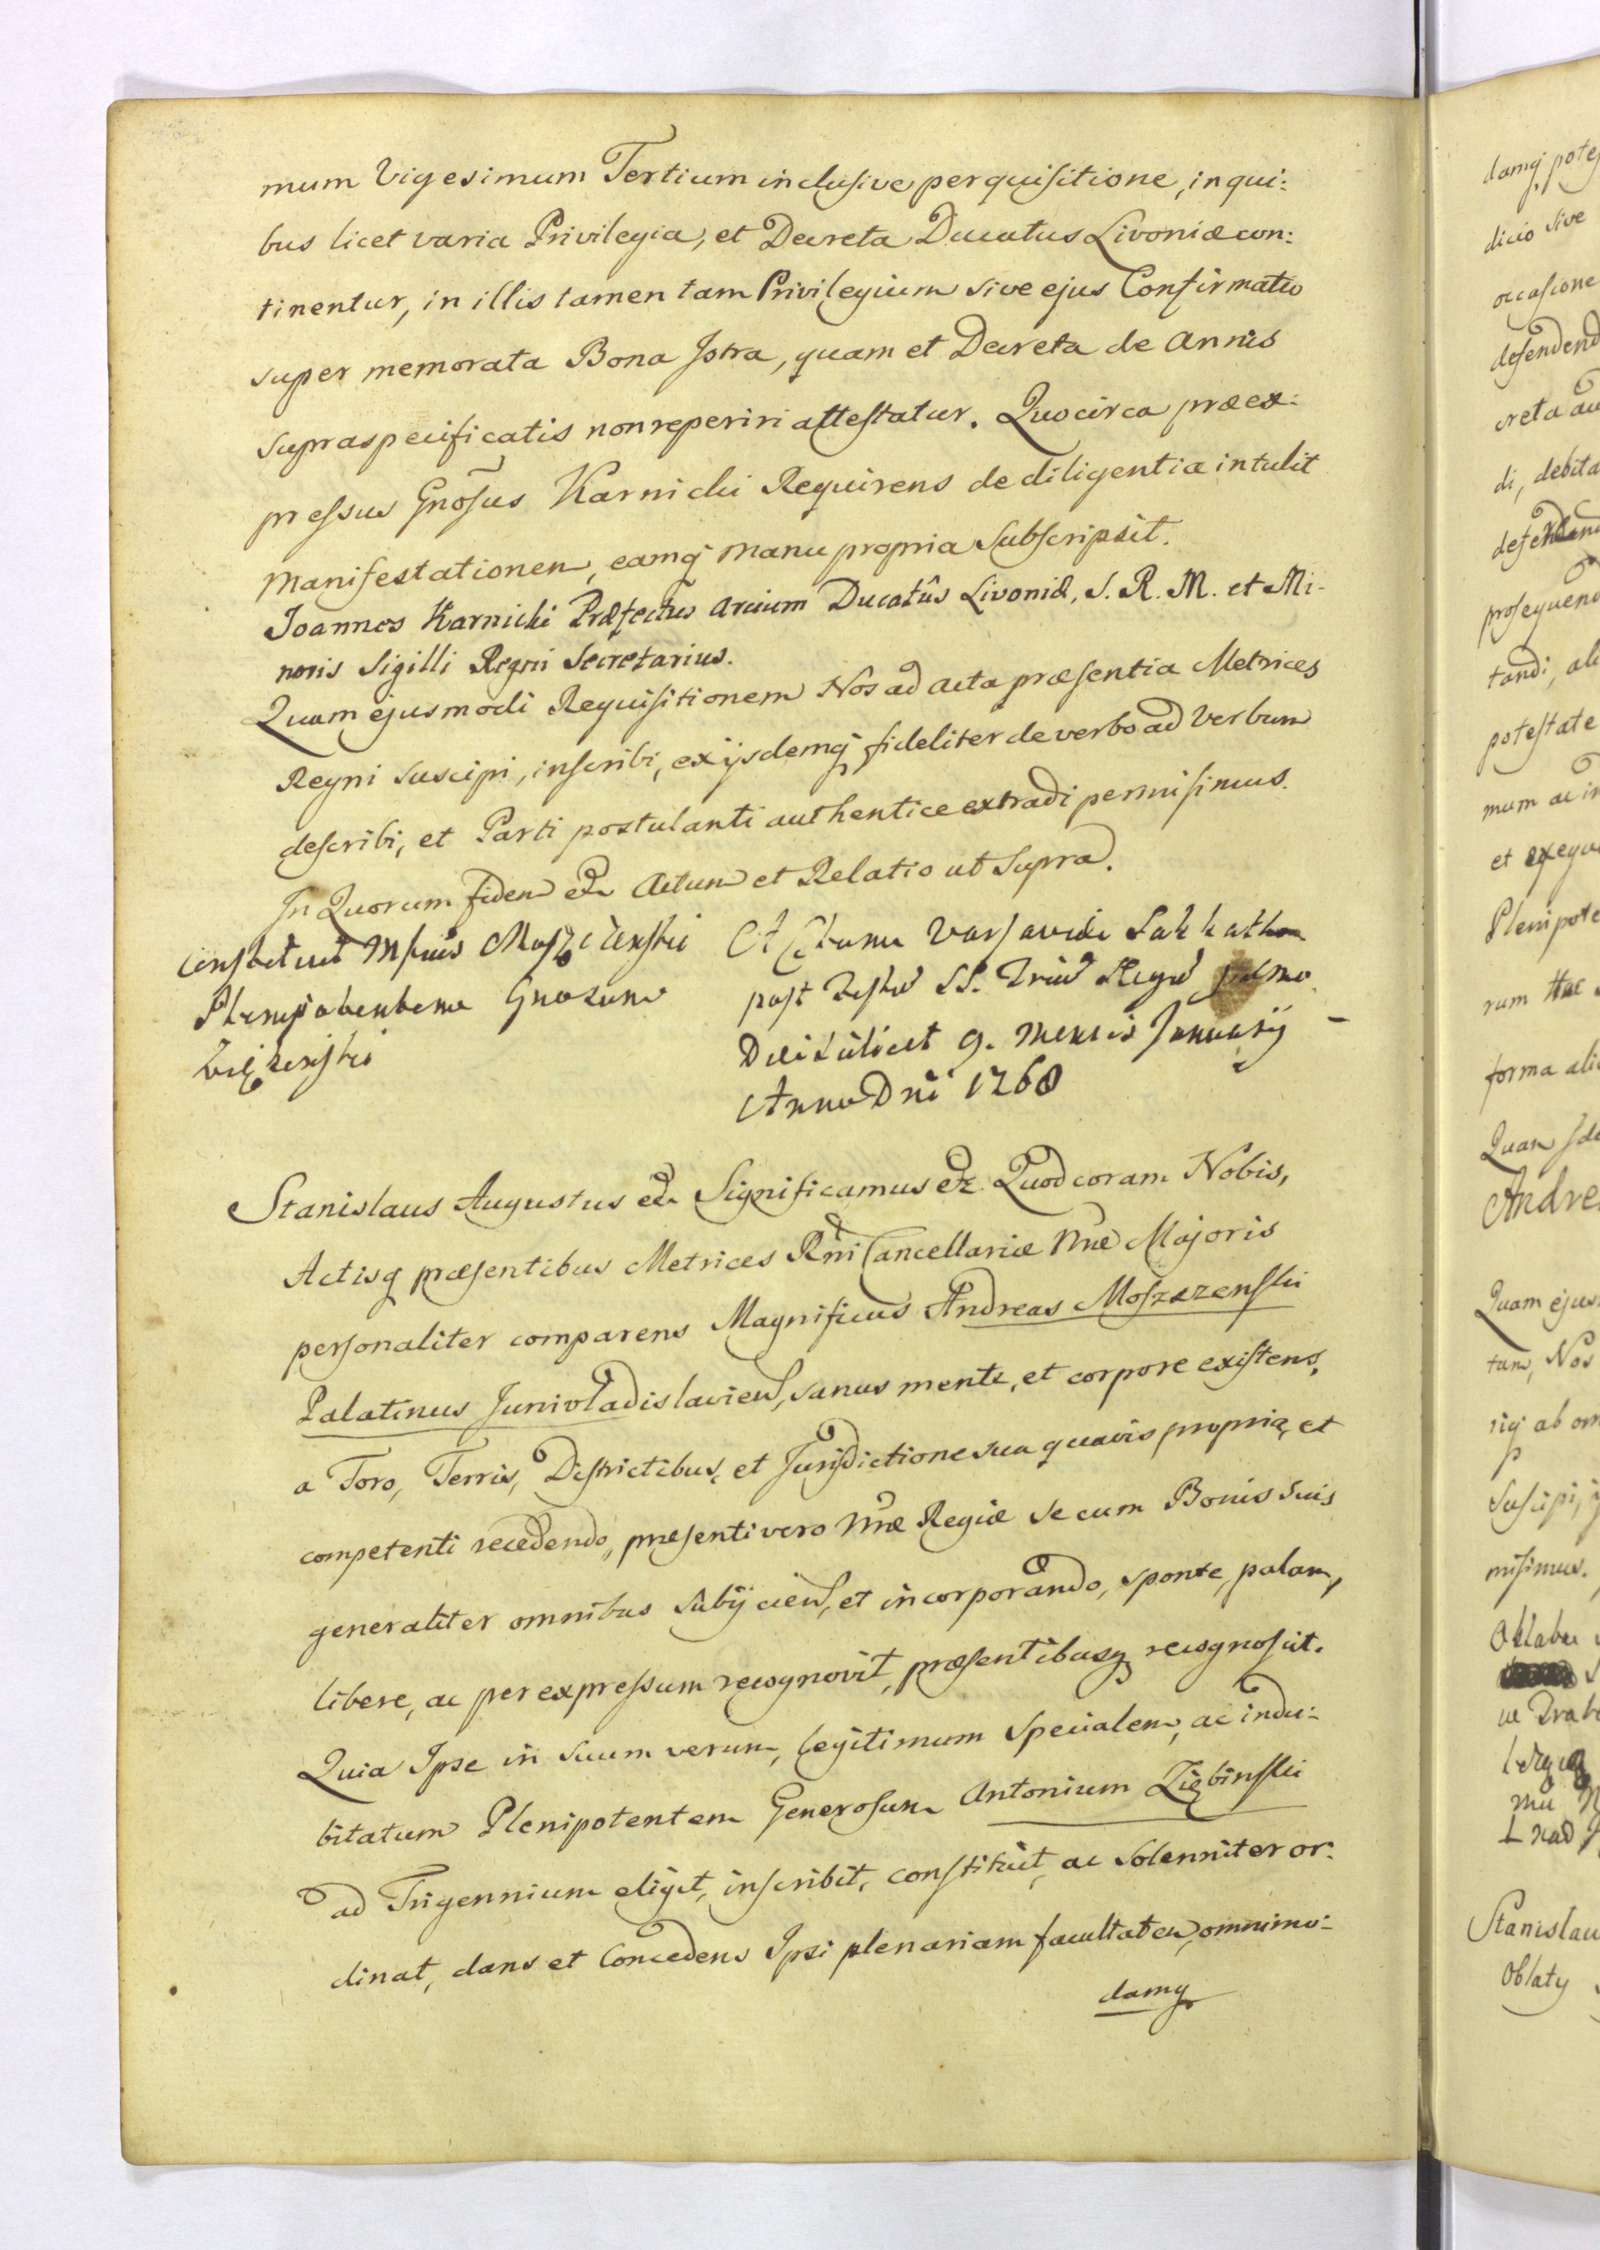 mum Vigesimum Tertium inclusive perquisitione, in qui:
bus licet varia Privilegia, et Decreta Ducatus Livoniæ con:
tinentur, in illis tamen tam Privilegium sive ejus Confirmatio
super memorata Bona Istra, quam et Decreta de Annis
supraspecificatis non reperiri attestatur. Quocirca præex:
pressus Gnōsus Karnicki Requirens de diligentia intulit
Manifestationem, eamq manu propria Subscripsit.
Joannes Karnicki Præfectus Arcium Ducatûs Livoniæ, S. R. M. et Mi-
noris Sigilli Regni Secretarius.
Quam ejusmodi Requisitionem Nos ad Acta præsentia Metrices
Regni suscipi, inscribi, ex ijsdemq fideliter de verbo ad Verbum
describi, et Parti postulanti authentice extradi permisimus.
In Quorum fidem etc Actum et Relatio ut Supra.
Constituit Mfcus Moszczenski
Plenipotentem Gnosum
Actum Varsaviæ Sabbatho
post Festum SS. Trium Regum primo
Die scilicet 9. Mensis Januarij –
Anno Dni 1768
Stanislaus Augustus etc Significamus etc. Quod coram Nobis,
Actisq præsentibus Metrices Rni Cancellariæ Nræ Majoris
personaliter comparens Magnificus Andreas Moszczenski
Palatinus Junivladislavien, sanus mente, et corpore existens,
a Foro, Terris, Districtibus, et Jurisdictione sua quavis propria, et
competenti recedendo, præsenti vero Nræ Regiæ se cum Bonis suis
generaliter omnibus subijcien, et incorporando, sponte, palam,
libere, ac per expressum recognovit, præsentibusq recognoscit.
Quia Ipse in suum verum, legitimum Specialem, ac indu:
bitatum Plenipotentem Generosum Antonium Ziębinski
ad Trigennium eligit, inscribit, constituit, ac Solenniter or:
dinat, dans et Concedens Ipsi plenariam facultatem, omnimo:
damq